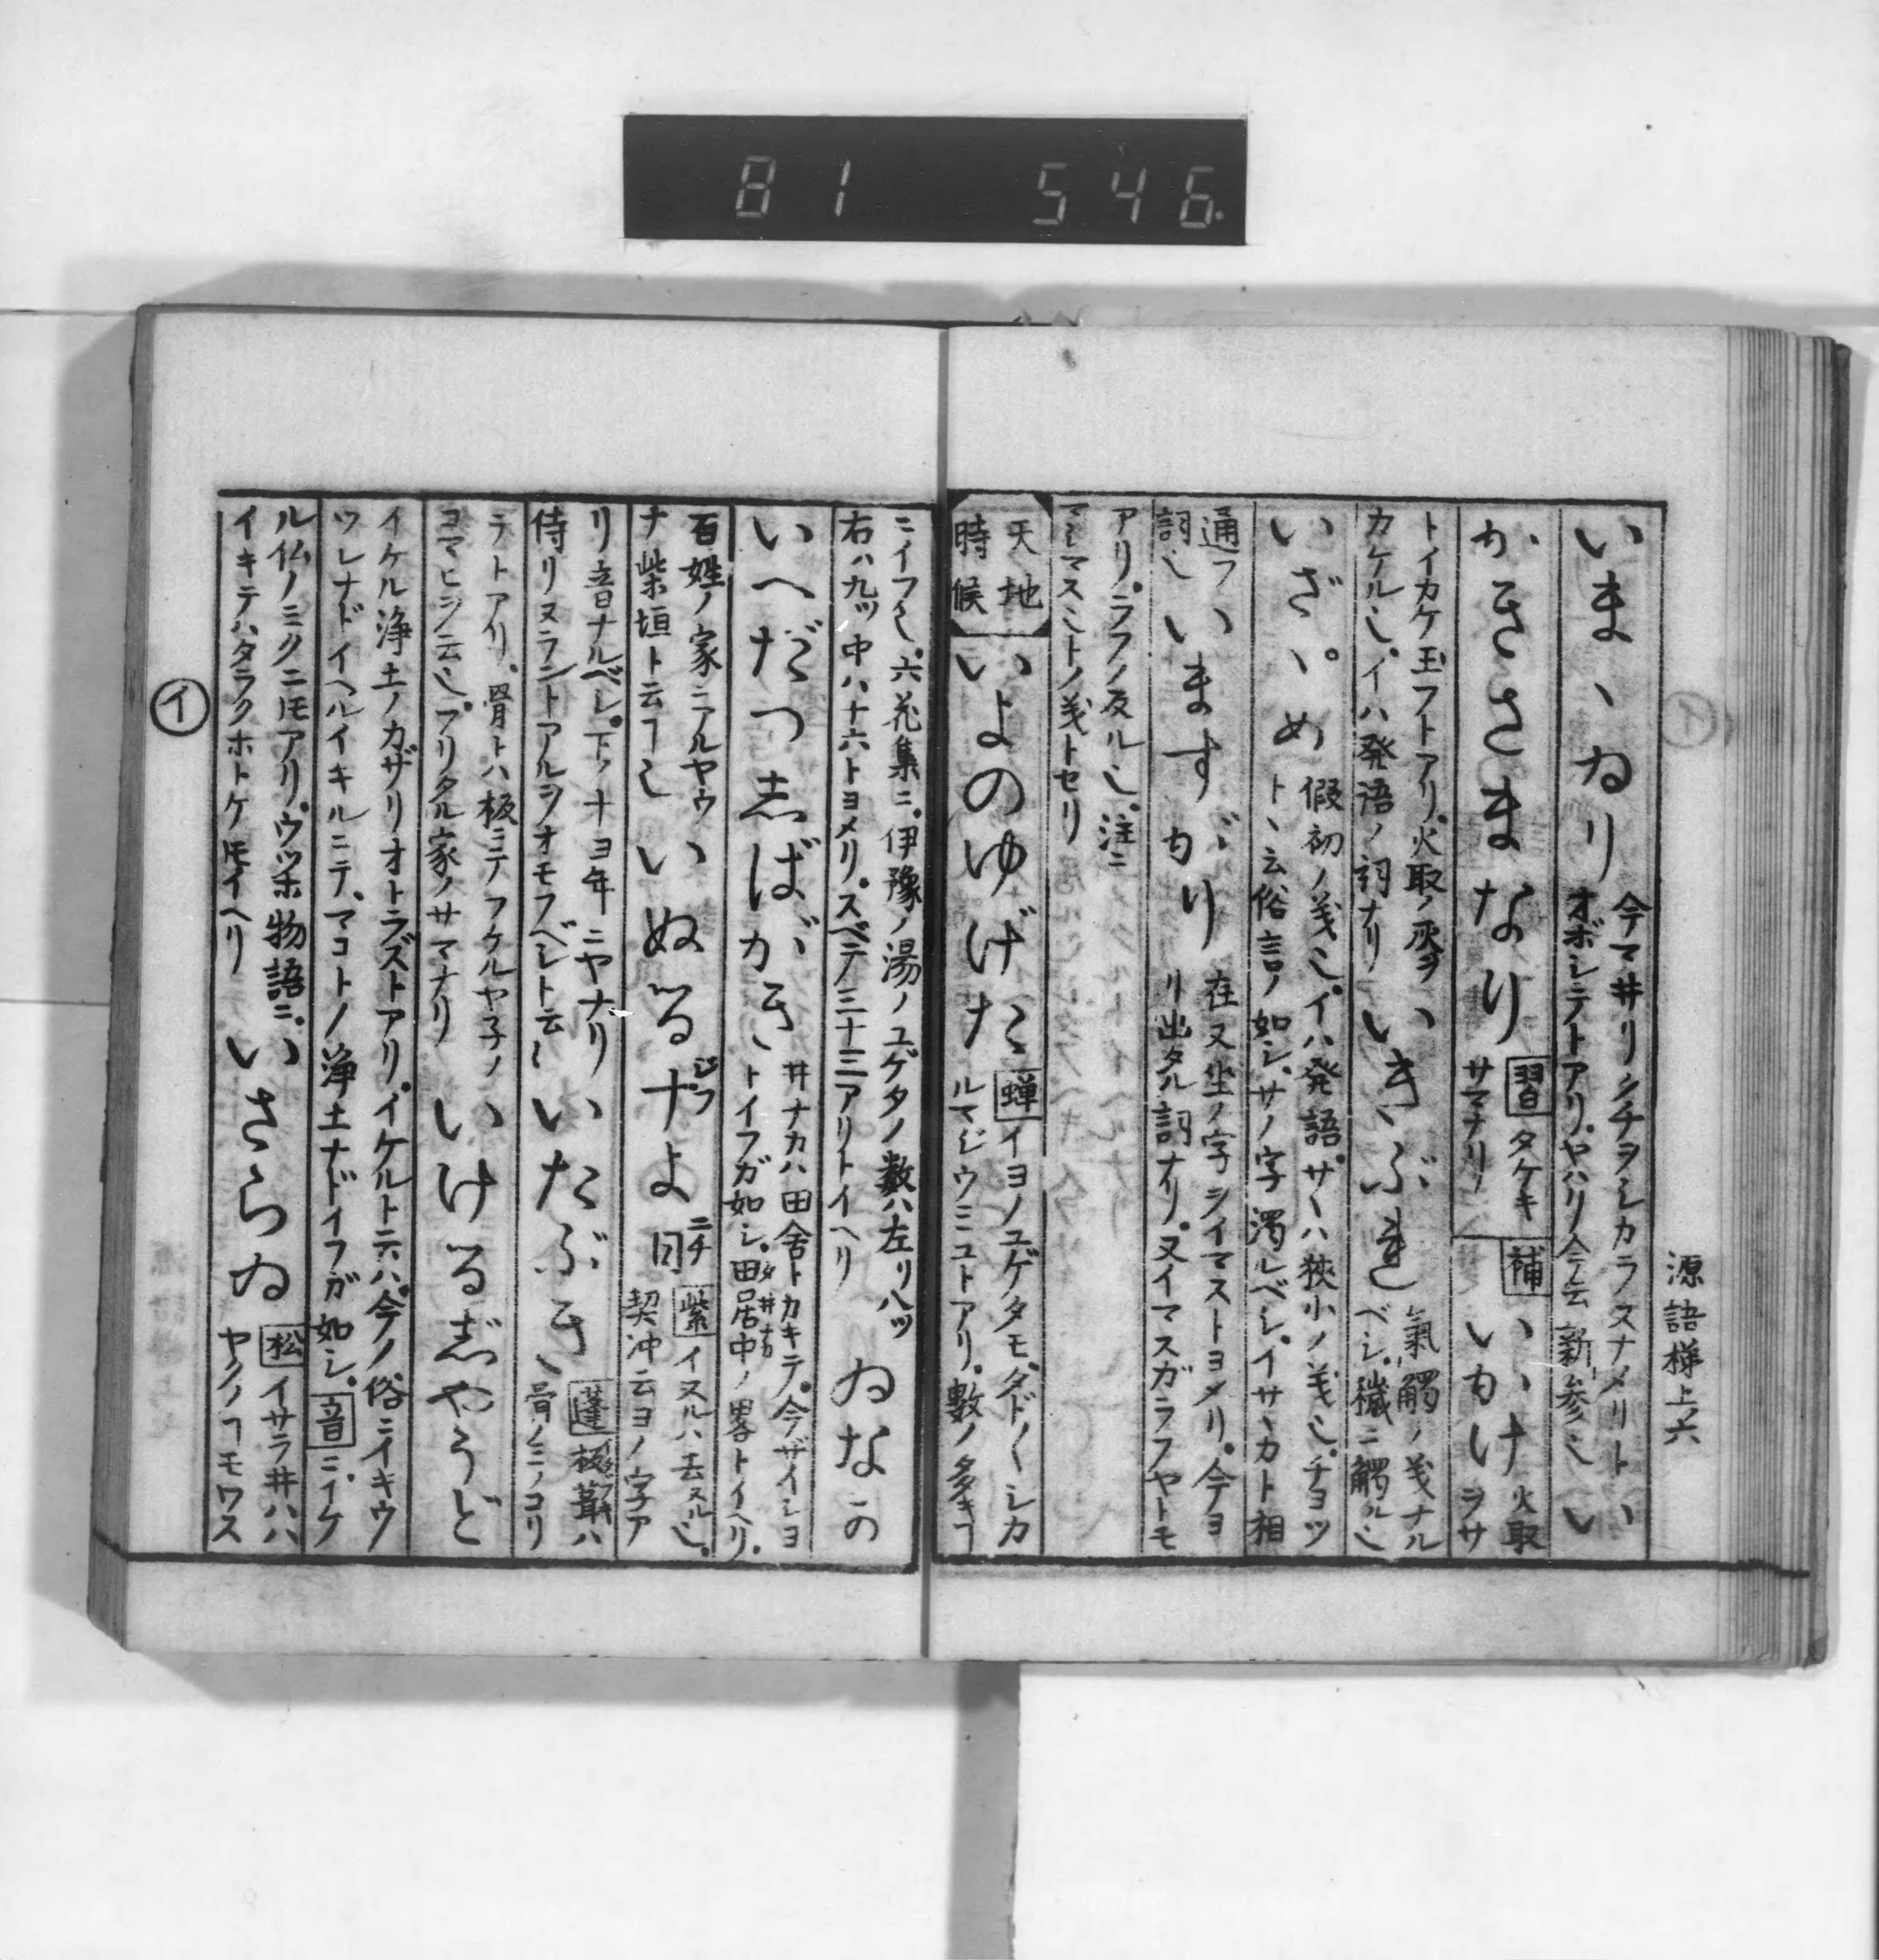 81 546
源語梯上六
いまゝゐり
今マ井リシチヲシカラスナメリトイ
オボシテトアリ。ヤハリ今云新参也
い
かきさまなり
習 タケキ
サマナリ
補
いかけ
火取
ヲサ
トイカケ玉フトアリ。火取ノ灰ヲ
カケル也。イハ発語ノ詞ナリ
いきぶれ
氣觸ノ義ナル
ベシ。穢ニ觸ル也
いざゝめ
假初ノ義也。イハ発語サヽハ狹小ノ義也。チヨツ
トヽ云俗言ノ如シ。サノ字濁ルベシ。イサヽカト相
通フ
詞也
いますがり
在又坐ノ字ヲイマストヨメリ。今ヨ
リ出タル詞ナリ。又イマスガラフヤトモ
アリ。ラフノ反ル也。注ニ
マシマスミトノ義トセリ
天地
時候
いよのゆげた
蝉 イヨノユゲタモタド〱シカ
ルマジウミユトアリ。數ノ多キヿ
ニイフ也。六花集ニ。伊豫ノ湯ノユゲタノ数ハ左リ八ツ
右ハ九ツ中ハ十六トヨメリ。スベテ三十三アリトイヘリ
ゐなの
いへだつしばがき
井ナカハ田舎トカキテ。今ザイシヨ
トイフガ如シ。田居中ノ畧トイヘリ。
百姓ノ家ニアルヤウ
ナ柴垣ト云ヿ也
いぬる十よ日
ジフ
ニチ
紫 イヌルハ去ヌル也。
契沖云ヨノ字ア
リ音ナルベシ。下ノ十ヨ年ニヤナリ
侍リヌラントアルヲオモフベシト云〻
いたぶき
蓬 板葺ハ
骨ノミノコリ
テトアリ。骨トハ板ニテフケルヤ子ノ
コマヒヲ云也。フリタル家ノサマナリ
いけるじやうど
イケル浄土ノカザリオトラズトアリ。イケルト云ハ。今ノ俗ニイキウ
ツレナドイヘルイキルニテ。マコトノ浄土ナドイフガ如シ。音ニ。イケ
ル仏ノミクニモアリ。ウツホ物語ニ。
イキテハタラクホトケトモイヘリ
いさらゐ
松 イサラ井ハハ
ヤクノヿモワス
イ